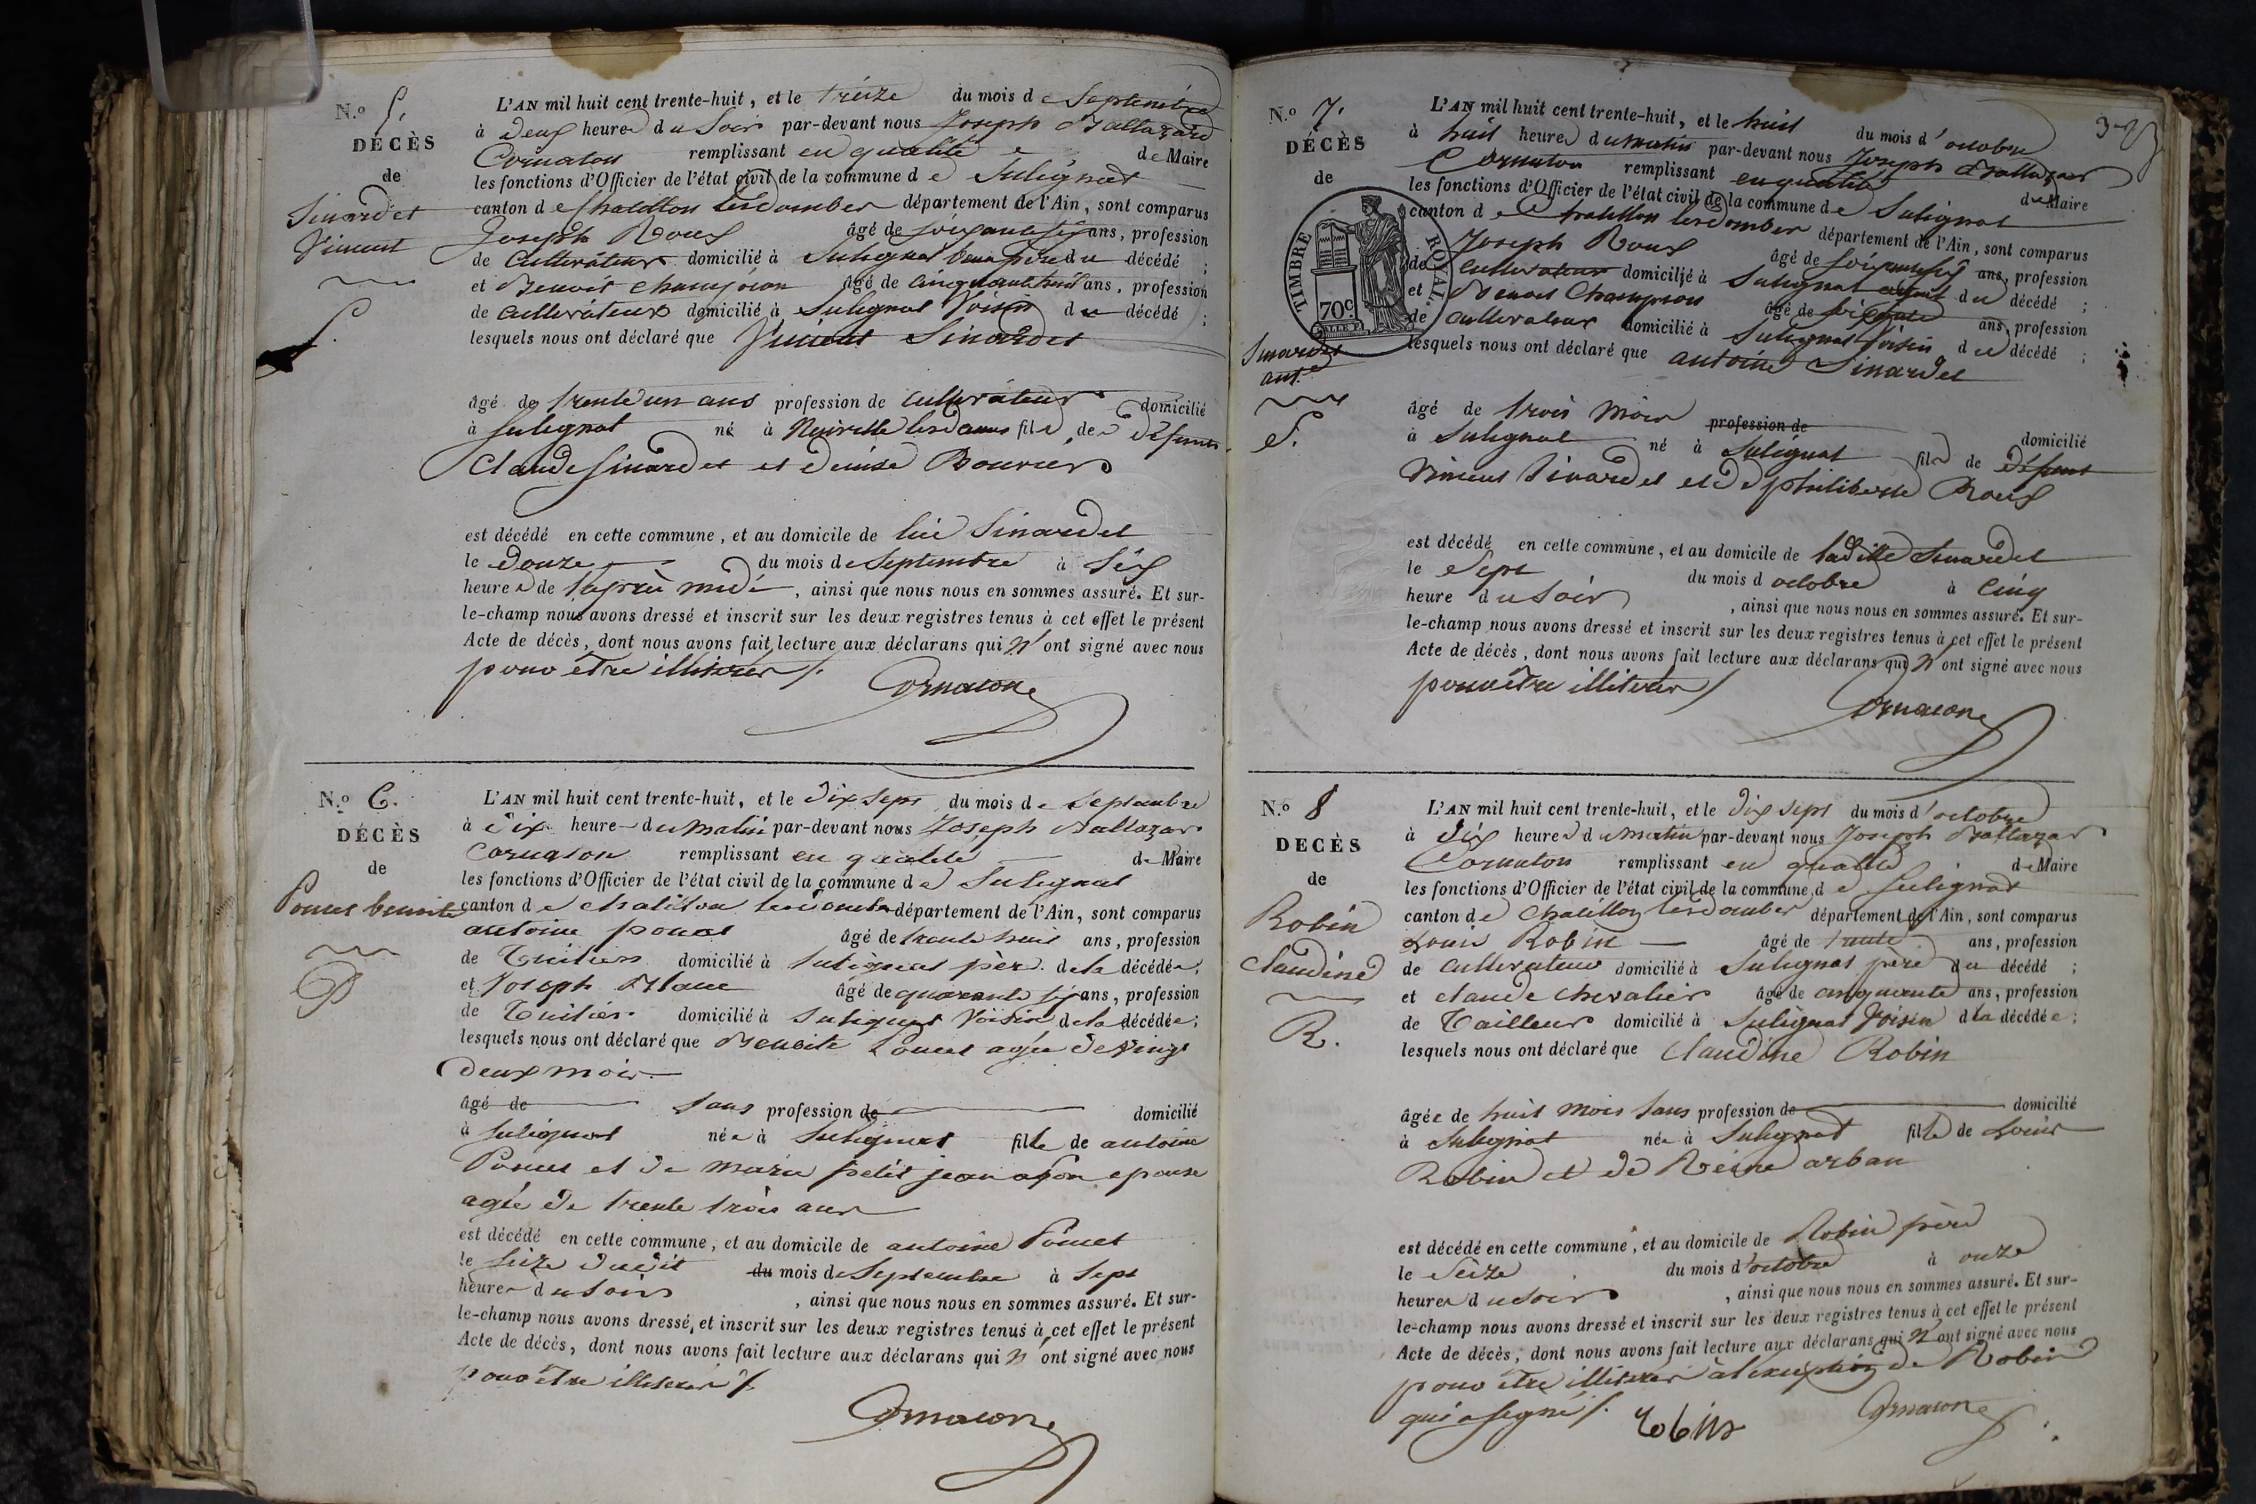 N.o 5.
DÉCÈS
de
Sinardet
Vincent
S.
L'AN mil huit cent trente-huit, et le treize du mois de Septembre
à Deux heures du Soir par-devant nous Joseph Baltazard
Cornaton remplissant en qualité de Maire
les fonctions d'Officier de l'état civil de la commune de Sulignat
canton de Chatillon les dombes département de l'Ain, sont comparus
Joseph Roux âgé de soixante six ans, profession
de Cultivateur domicilié à Sulignat beau père du décédé ;
et Benoit Champion âgé de cinquante huit ans, profession
de cultivateur domicilié à Sulignat Voisin du décédé ;
lesquels nous ont déclaré que Vincent Sinardet
âgé de trente un ans profession de cultivateur domicilié
à Sulignat né à Neuville les dames fils de Défunts
Claude Sinardet et Denise Bouvier
est décédé en cette commune, et au domicile de lui Sinardet
le Douze du mois de Septembre à six
heures de l'après midi, ainsi que nous nous en sommes assuré. Et sur-
le-champ nous avons dressé et inscrit sur les deux registres tenus à cet effet le présent
Acte de décès, dont nous avons fait lecture aux déclarans qui n'ont signé avec nous
pour être illitérés /.
Cornaton
N.o 6.
DÉCÈS
de
Poncet benoite
P
L'AN mil huit cent trente-huit, et le dix sept du mois de Septembre
à dix heures du matin par-devant nous Joseph Baltazar
Cornaton remplissant en qualité de Maire
les fonctions d'Officier de l'état civil de la commune de Sulignat
canton de Chatillon les dombes département de l'Ain, sont comparus
antoine poncet âgé de trente huit ans, profession
de Tuilier domicilié à Sulignat père de la décédée ;
et Joseph Blanc âgé de quarante six ans, profession
de Tuilier domicilié à Sulignat Voisin de la décédée ;
lesquels nous ont déclaré que Benoite Poncet agée de Vingt
deux mois
âgé de sans profession de domicilié
à Sulignat née à Sulignat fille de antoine
Poncet et de marie petit jean son epouse
agée de trente trois ans
est décédé en cette commune, et au domicile de antoine Poncet
le seize dudit du mois de Septembre à sept
heures du soir, ainsi que nous nous en sommes assuré. Et sur-
le-champ nous avons dressé, et inscrit sur les deux registres tenus à cet effet le présent
Acte de décès, dont nous avons fait lecture aux déclarans qui n'ont signé avec nous
pour être illitérés /.
Cornaton
N.o 7.
DÉCÈS
de
TIMBRE ROYAL.
70c
Sinardet
ant.e
S.
L'AN mil huit cent trente-huit, et le huit du mois d'octobre
à huit heures du matin par-devant nous Joseph Baltazar
Cornaton remplissant en qualité de Maire
les fonctions d'Officier de l'état civil de la commune de Sulignat
canton de Chatillon les dombes département de l'Ain, sont comparus
Joseph Roux âgé de soixante six ans, profession
de cultivateur domicilié à Sulignat du décédé ;
et Benoit Champion âgé de soixante ans, profession
de cultivateur domicilié à Sulignat Voisin du décédé ;
lesquels nous ont déclaré que antoine Sinardet
âgé de trois mois profession de domicilié
à Sulignat né à Sulignat fils de défunt
Vincent Sinardet et de philiberte Roux
est décédé en cette commune, et au domicile de ladite Sinardet
le Sept du mois d octobre à Cinq
heure du soir, ainsi que nous nous en sommes assuré. Et sur-
le-champ nous avons dressé et inscrit sur les deux registres tenus à cet effet le présent
Acte de décès, dont nous avons fait lecture aux déclarans qui n'ont signé avec nous
pour être illitérés /
Cornaton
N.o 8
DECÈS
de
Robin
Claudine
R.
L'AN mil huit cent trente-huit, et le dix sept du mois d'octobre
à dix heures du matin par-devant nous Joseph Baltazar
Cornaton remplissant en qualité de Maire
les fonctions d'Officier de l'état civil de la commune de Sulignat
canton de Chatillon les dombes département de l'Ain, sont comparus
Louis Robin âgé de trente ans, profession
de cultivateur domicilié à Sulignat père du décédé ;
et claude chevalier âgé de cinquante ans, profession
de Tailleur domicilié à Sulignat Voisin d la décédée ;
lesquels nous ont déclaré que Claudine Robin
âgée de huit mois sans profession de domicilié
à Sulignat née à Sulignat fille de Louis
Robin et de Reine arban
est décédé en cette commune, et au domicile de Robin père
le Seize du mois d'octobre à onze
heures du soir, ainsi que nous nous en sommes assuré. Et sur-
le-champ nous avons dressé et inscrit sur les deux registres tenus à cet effet le présent
Acte de décès, dont nous avons fait lecture aux déclarans qui n'ont signé avec nous
pour être illitérés à l'exception de Robin
qui a signé /.
Robin
Cornaton